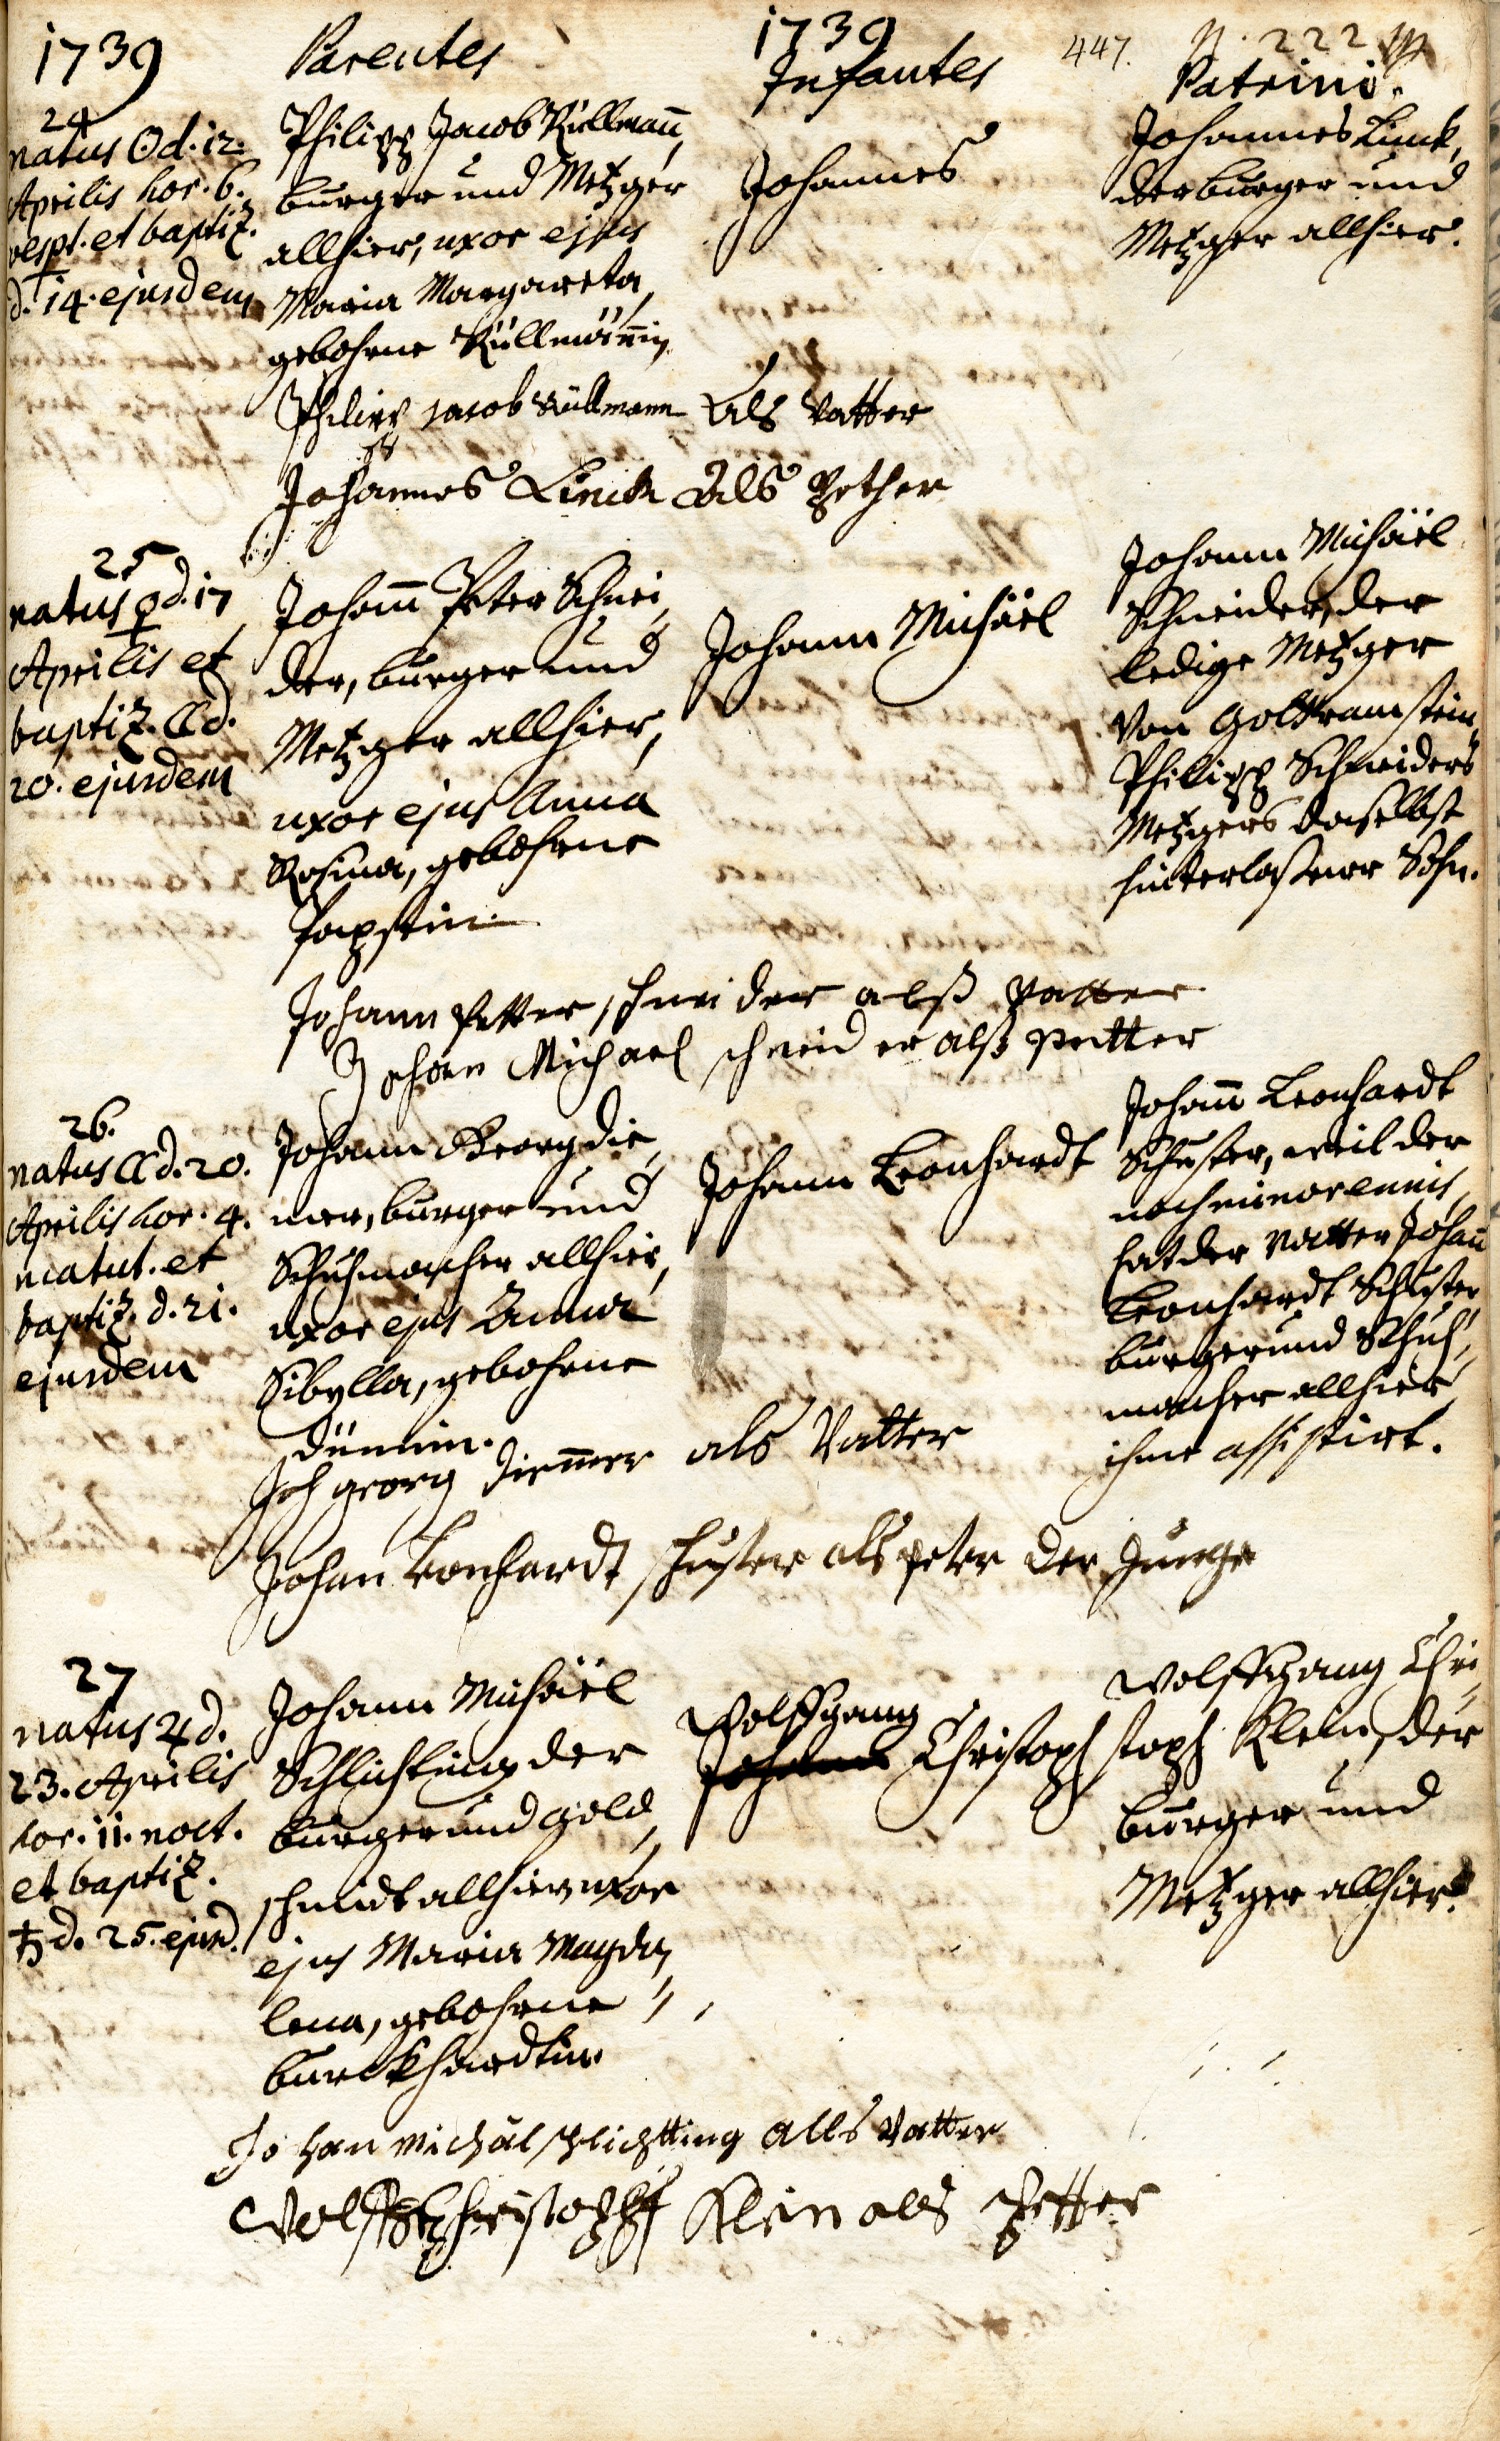 1739
Parentes
1739
Infantes
447.
N. 222
Patrini.
24
natus ☉ d. 12.
Aprilis hor. 6.
vespt. et baptiz.
d. 14. ejusdem
Philipp Jacob Rüllmann,
burger und Metzger
allhier, uxor ejus
Maria Margareta,
gebohrne Rüllmännin
Johannes
Johannes Linck,
der burger und
Metzger allhier.
Philipp jacob Rüllmann Als Vatter
Johannes Linck Als Pether
25
natus ♀ d. 17
Aprilis et
baptiz. ☾ d.
20. ejusdem
Johann Peter Schnei,
der, burger und
Metzger allhier,
uxor ejus Anna
Rosina, gebohrne
Papstin.
Johann Michäel
Johann Michäel
Schneider, der
ledige Metzger
Von Goltramstein,
Philipp Schneiders
Metzgers daselbst
hinterlaßener Sohn.
Johann Petter schneider alß Vatter
Johan Michael schneider alß Petter
26.
natus ☾ d. 20.
Aprilis hor. 4.
matut. et
baptiz. d. 21.
ejusdem
Johann Georg die,
ner, burger und
Schuhmacher allhier,
uxor ejus Anna
Sibylla, gebohrne
Dümin.
Johann Leonhardt
Johann Leonhardt
Schuster, weil der
noch minorennis,
hat der Vatter Johann
Leonhardt Schuster
burger und Schuh,
macher allhier
ihme assistirt.
Joh georg dienner als Vatter
Johan Leonhardt schuster als peter der Junge
27
natus ♃ d.
23. Aprilis
hor. 11. noct.
et baptiz.
♄ d. 25. ejusd.
Johann Michäel
Schlichting der
burger und Gold,
schmidt allhier, uxor
ejus Maria Magda,
lena, gebohrne
Burckhardtin.
Wolffgang
Johann Christoph
Wolffgang Chri,
stoph Klein, der
burger und
Metzger allhier.
Johan Michäl schlichtting alls Vatter
Wolffg Christoph Klein als Petter